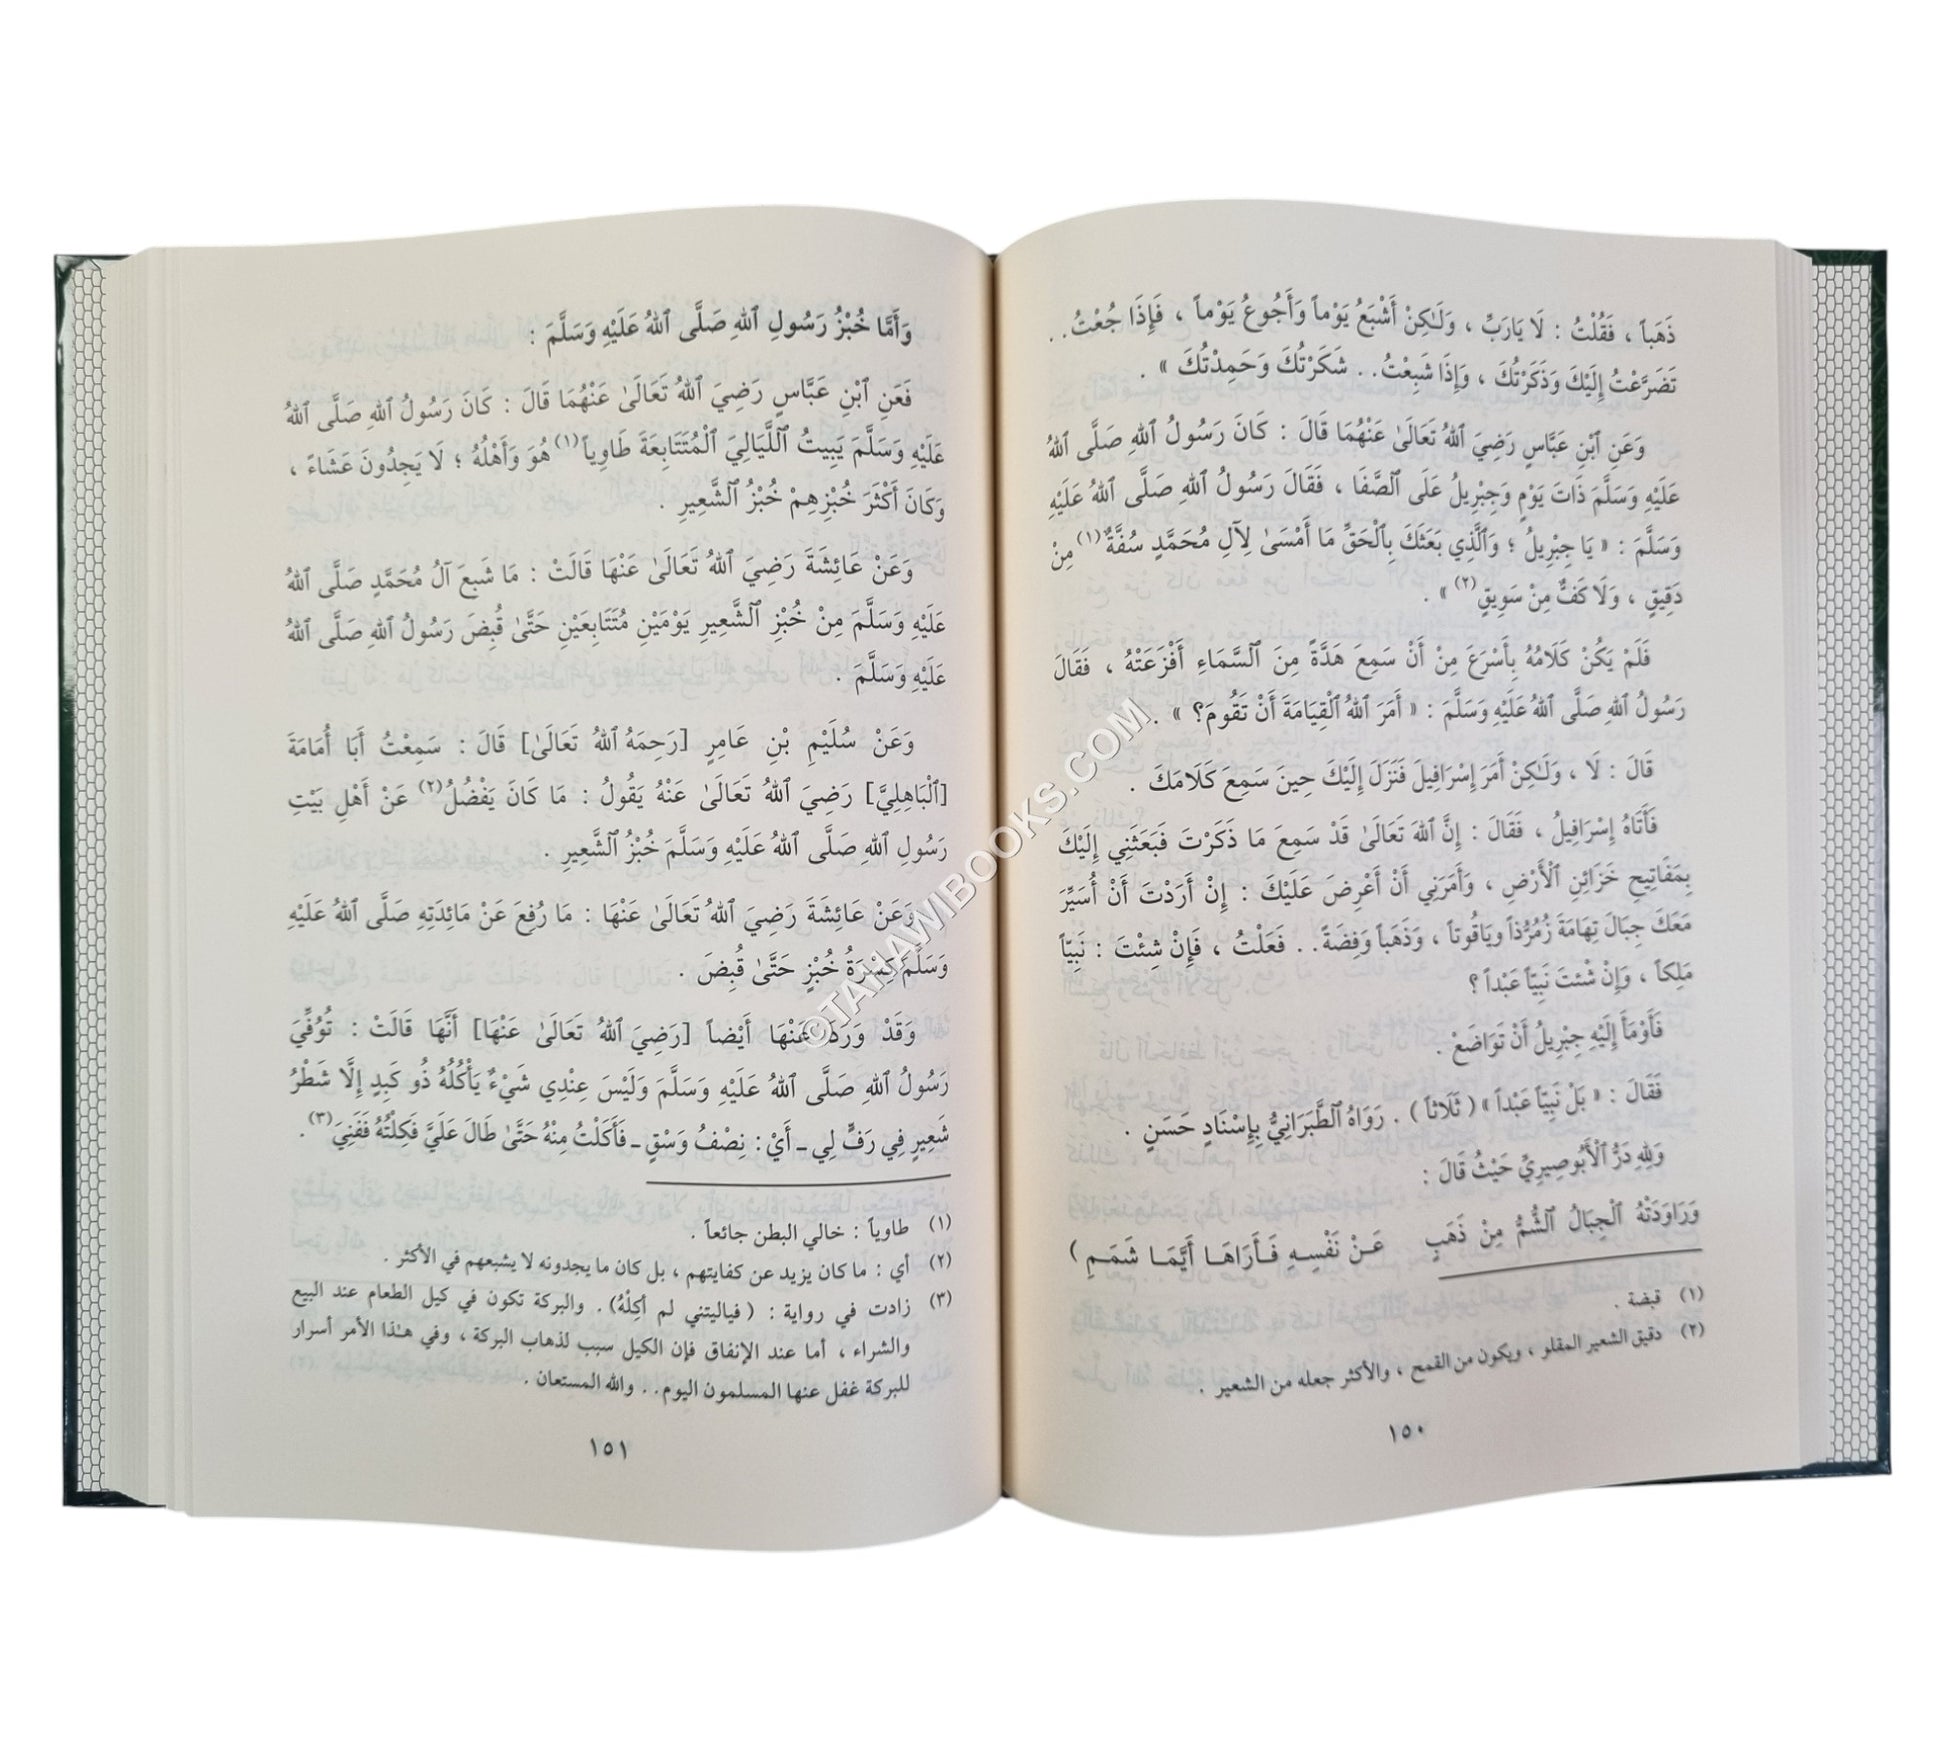 ذَهَباً ، فَقُلْتُ : لَا يَارَبِّ ، وَلَـٰكِنْ أَشْبَعُ يَوْماً وَأَجُوعُ يَوْماً ، فَإِذَا جُعْتُ . .
تَضَرَّعْتُ إِلَيْكَ وَذَكَرْتُكَ ، وَإِذَا شَبِعْتُ . . شَكَرْتُكَ وَحَمِدْتُكَ » .
وَعَنِ ٱبْنِ عَبَّاسٍ رَضِيَ ٱللهُ تَعَالَىٰ عَنْهُمَا قَالَ : كَانَ رَسُولُ ٱللهِ صَلَّى ٱللهُ
عَلَيْهِ وَسَلَّمَ ذَاتَ يَوْمٍ وَجِبْرِيلُ عَلَى ٱلصَّفَا ، فَقَالَ رَسُولُ ٱللهِ صَلَّى ٱللهُ عَلَيْهِ
وَسَلَّمَ : « يَا جِبْرِيلُ ؛ وَٱلَّذِي بَعَثَكَ بِٱلْحَقِّ مَا أَمْسَىٰ لِآلِ مُحَمَّدٍ سُفَّةٌ(١) مِنْ
دَقِيقٍ ، وَلَا كَفٌّ مِنْ سَوِيقٍ(٢) » .
فَلَمْ يَكُنْ كَلَامُهُ بِأَسْرَعَ مِنْ أَنْ سَمِعَ هَدَّةً مِنَ ٱلسَّمَاءِ أَفْزَعَتْهُ ، فَقَالَ
رَسُولُ ٱللهِ صَلَّى ٱللهُ عَلَيْهِ وَسَلَّمَ : « أَمَرَ ٱللهُ ٱلْقِيَامَةَ أَنْ تَقُومَ؟ » .
قَالَ : لَا ، وَلَـٰكِنْ أَمَرَ إِسْرَافِيلَ فَنَزَلَ إِلَيْكَ حِينَ سَمِعَ كَلَامَكَ .
فَأَتَاهُ إِسْرَافِيلُ ، فَقَالَ : إِنَّ ٱللهَ تَعَالَىٰ قَدْ سَمِعَ مَا ذَكَرْتَ فَبَعَثَنِي إِلَيْكَ
بِمَفَاتِيحِ خَزَائِنِ ٱلْأَرْضِ ، وَأَمَرَنِي أَنْ أَعْرِضَ عَلَيْكَ : إِنْ أَرَدْتَ أَنْ أُسَيِّرَ
مَعَكَ جِبَالَ تِهَامَةَ زُمُرُّذاً وَيَاقُوتاً ، وَذَهَباً وَفِضَةً . . فَعَلْتُ ، فَإِنْ شِئْتَ : نَبِيّاً
مَلِكاً ، وَإِنْ شِئْتَ نَبِيّاً عَبْداً ؟
فَأَوْمَأَ إِلَيْهِ جِبْرِيلُ أَنْ تَوَاضَعْ .
فَقَالَ : « بَلْ نَبِيّاً عَبْداً » ( ثَلَاثاً ) . رَوَاهُ ٱلطَّبَرَانِيُّ بِإِسْنَادٍ حَسَنٍ .
وَلِلهِ دَرُّ ٱلْأَبُوصِيرِيِّ حَيْثُ قَالَ :
وَرَاوَدَتْهُ ٱلْجِبَالُ ٱلشُّمُّ مِنْ ذَهَبٍ عَـنْ نَفْسِـهِ فَـأَرَاهَـا أَيَّمَـا شَمَـمِ )
(١) قبضة .
(٢) دقيق الشعير المقلو ، ويكون من القمح ، والأكثر جعله من الشعير .
١٥٠
وَأَمَّا خُبْزُ رَسُولِ ٱللهِ صَلَّى ٱللهُ عَلَيْهِ وَسَلَّمَ :
فَعَنِ ٱبْنِ عَبَّاسٍ رَضِيَ ٱللهُ تَعَالَىٰ عَنْهُمَا قَالَ : كَانَ رَسُولُ ٱللهِ صَلَّى ٱللهُ
عَلَيْهِ وَسَلَّمَ يَبِيتُ ٱللَّيَالِيَ ٱلْمُتَتَابِعَةَ طَاوِياً(١) هُوَ وَأَهْلُهُ ؛ لَا يَجِدُونَ عَشَاءً ،
وَكَانَ أَكْثَرَ خُبْزِهِمْ خُبْزُ ٱلشَّعِيرِ .
وَعَنْ عَائِشَةَ رَضِيَ ٱللهُ تَعَالَىٰ عَنْهَا قَالَتْ : مَا شَبِعَ آلُ مُحَمَّدٍ صَلَّى ٱللهُ
عَلَيْهِ وَسَلَّمَ مِنْ خُبْزِ ٱلشَّعِيرِ يَوْمَيْنِ مُتَتَابِعَيْنِ حَتَّىٰ قُبِضَ رَسُولُ ٱللهِ صَلَّى ٱللهُ
عَلَيْهِ وَسَلَّمَ .
وَعَنْ سُلَيْمِ بْنِ عَامِرٍ [رَحِمَهُ ٱللهُ تَعَالَىٰ] قَالَ : سَمِعْتُ أَبَا أُمَامَةَ
[ٱلْبَاهِلِيَّ] رَضِيَ ٱللهُ تَعَالَىٰ عَنْهُ يَقُولُ : مَا كَانَ يَفْضُلُ(٢) عَنْ أَهْلِ بَيْتِ
رَسُولِ ٱللهِ صَلَّى ٱللهُ عَلَيْهِ وَسَلَّمَ خُبْزُ ٱلشَّعِيرِ .
وَعَنْ عَائِشَةَ رَضِيَ ٱللهُ تَعَالَىٰ عَنْهَا : مَا رُفِعَ عَنْ مَائِدَتِهِ صَلَّى ٱللهُ عَلَيْهِ
وَسَلَّمَ كِسْرَةُ خُبْزٍ حَتَّىٰ قُبِضَ .
وَقَدْ وَرَدَ عَنْهَا أَيْضاً [رَضِيَ ٱللهُ تَعَالَىٰ عَنْهَا] أَنَّهَا قَالَتْ : تُوُفِّيَ
رَسُولُ ٱللهِ صَلَّى ٱللهُ عَلَيْهِ وَسَلَّمَ وَلَيْسَ عِنْدِي شَيْءٌ يَأْكُلُهُ ذُو كَبِدٍ إِلَّا شَطْرُ
شَعِيرٍ فِي رَفٍّ لِي ـ أَيْ : نِصْفُ وَسْقٍ ـ فَأَكَلْتُ مِنْهُ حَتَّىٰ طَالَ عَلَيَّ فَكِلْتُهُ فَفَنِيَ(٣) .
(١) طاوياً : خالي البطن جائعاً .
(٢) أي : ما كان يزيد عن كفايتهم ، بل كان ما يجدونه لا يشبعهم في الأكثر .
(٣) زادت في رواية : ( فياليتني لم أكِلْهُ) . والبركة تكون في كيل الطعام عند البيع
والشراء ، أما عند الإنفاق فإن الكيل سبب لذهاب البركة ، وفي هـٰذا الأمر أسرار
للبركة غفل عنها المسلمون اليوم . . والله المستعان .
١٥١
©TAHAWIBOOKS.COM